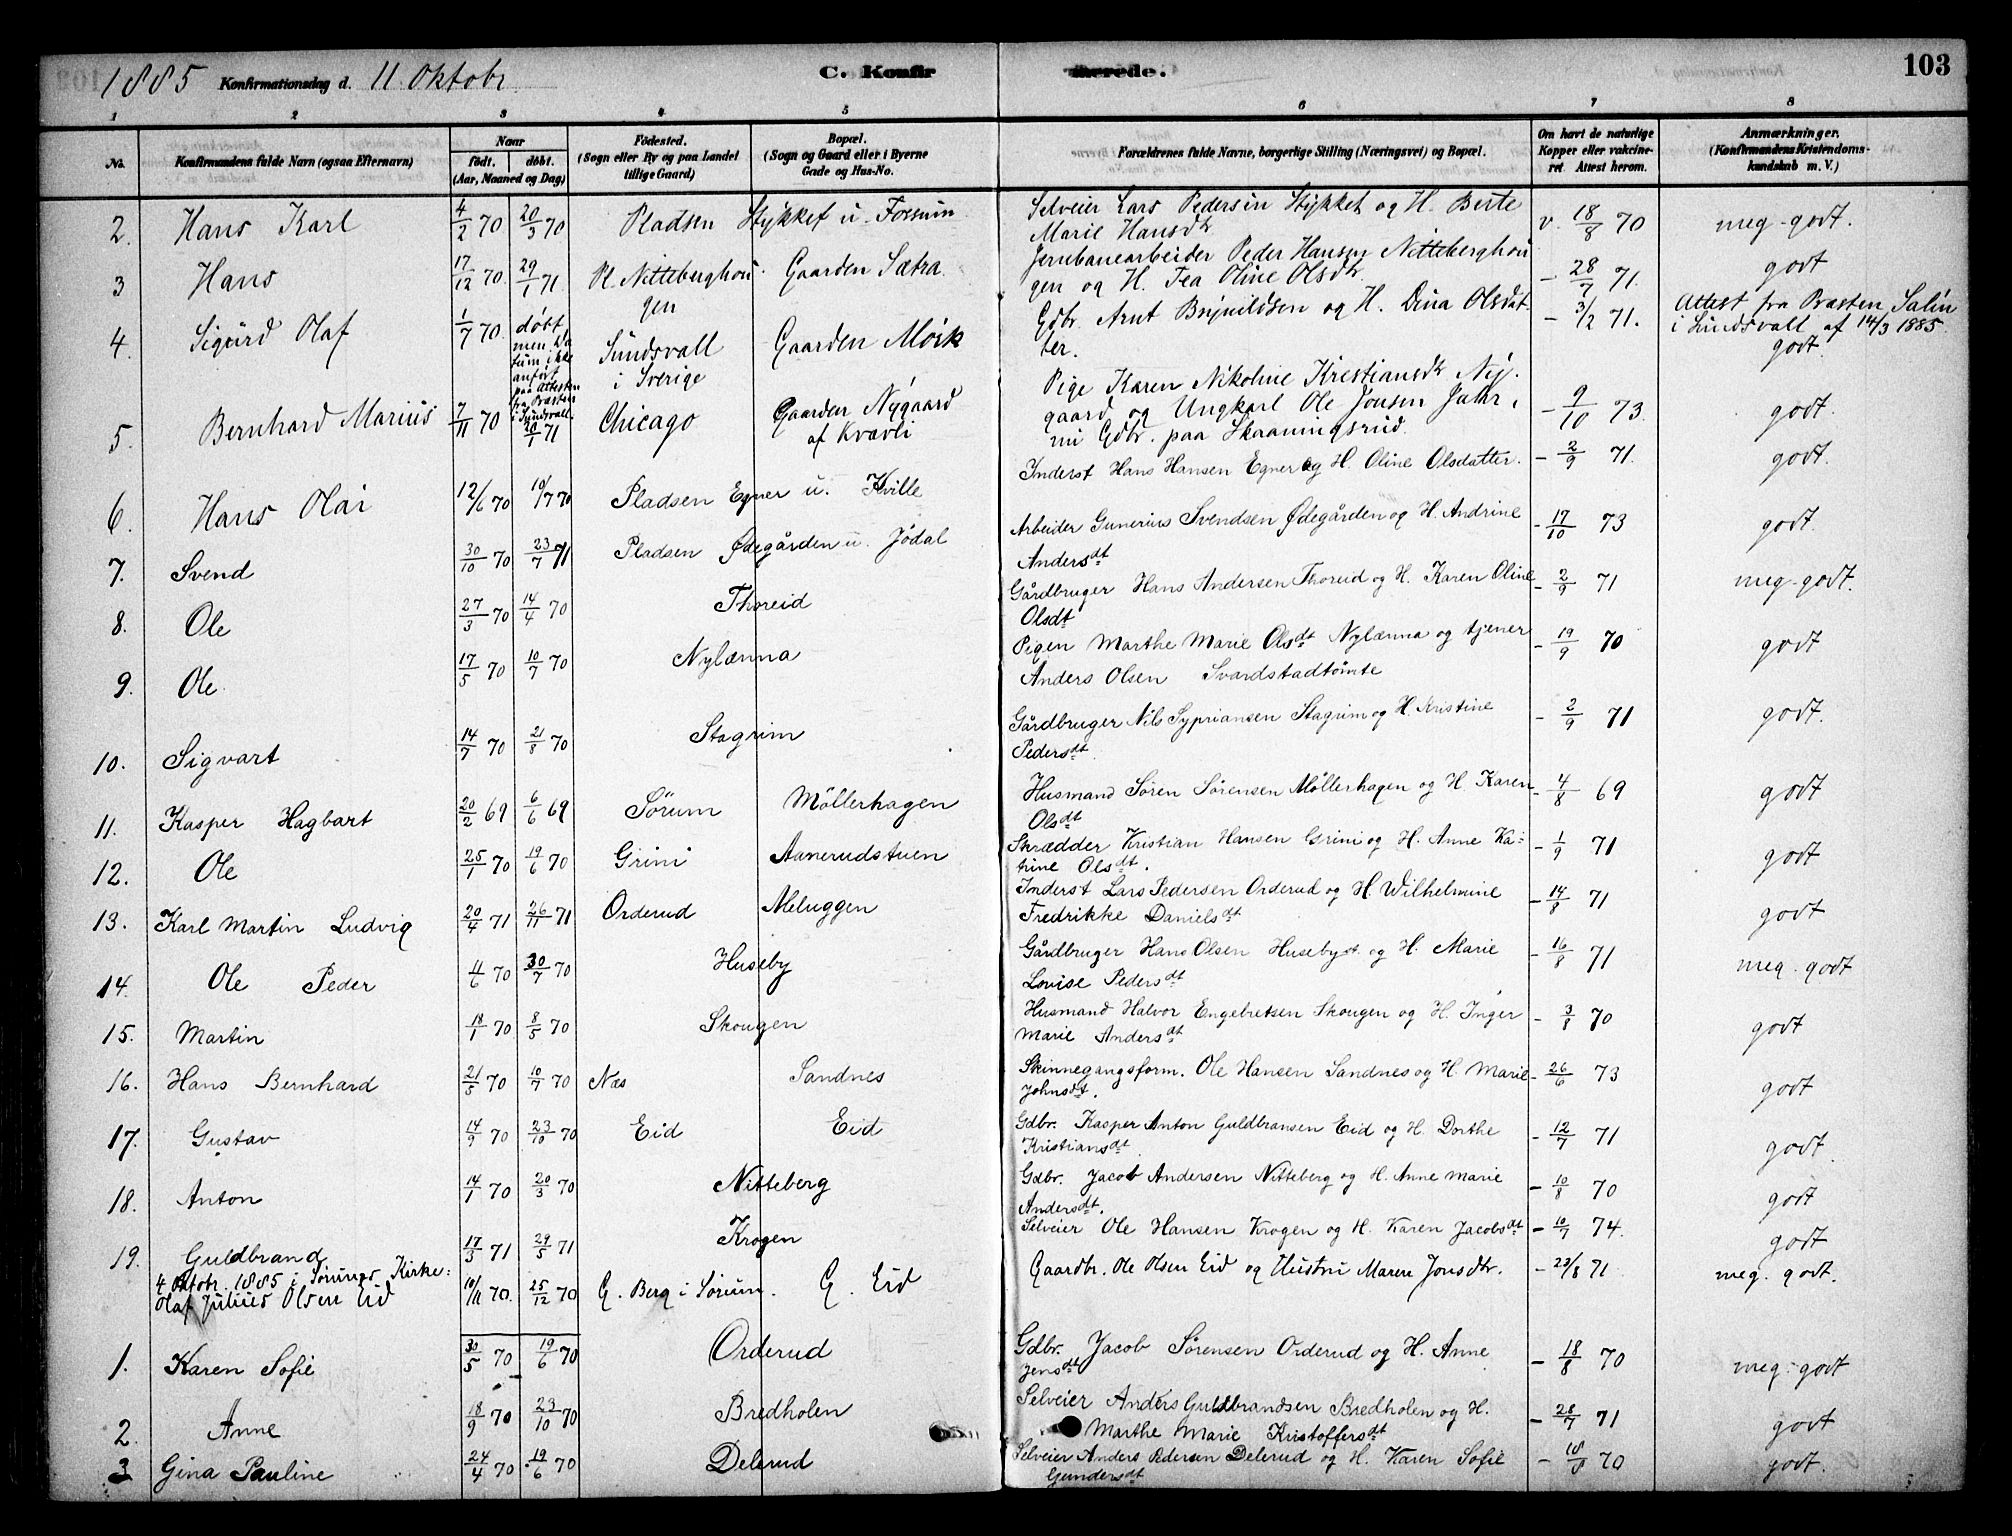 1885 Konfirmationsdag d. 11. Oktobr. C. Konfirmerede. 103
1 2 3 4 5 6 7 8
No. Konfirmandens fulde Navn (ogsaa Efternavn) Naar født. døbt. (Aar, Maaned og Dag) Fødested. (Sogn eller By og paa Landet tillige Gaard) Bopæl. (Sogn og Gaard eller i Byerne Gade og Hus-No. Forældrenes fulde Navne, borgerlige Stilling (Næringsvei) og Bopæl. Om havt de naturlige Kopper eller vakcineret Attest herom. Anmærkninger. (Konfirmandens Kristendomskundskab m. V.)
2. Hans Karl 4/2 70 20/3 70 Pladsen Stykket u. Fossum Selveier Lars Pedersen Stykket og H. Berte
Marie Hansdtr v. 18/8 70 meg-godt.
3 Hans 17/12 70. 29/1 71. Pl. Nitteberghougen Gaarden Sætra Jernbanearbeider Peder Hansen Nitteberghou
gen og H. Tea Oline Olsdtr - 28/7 71. godt
4. Sigurd Olaf 1/7 70. døbt men Datum ikke anført paa Attesten fra Præsten i Sundsvall. Sundsvall i Sverige Gaarden Mørk Gdbr. Arnt Brynildsen og H. Dina Olsdat
ter. - 3/2 71. Attest fra Præsten Salin
i Sundsvall af 14/3 1885.
godt.
5. Bernhard Marius 7/11 70 20/1 71 Chicago Gaarden Nygaard af Kvævli Pige Karen Nikoline Kristiansdtr Ny-
gaard og Ungkarl Ole Jonsen Jahr,
nu Gdbr. paa Skaaningsrud. - 9/10 73. godt.
6. Hans Olai 12/6 70 10/7 70 Pladsen Egner u. Kville Inderst Hans Hansen Egner og H. Oline Olsdatter. - 2/9 71. godt.
7. Svend 30/10 70 23/7 71 Pladsen Ødegården u. Jødal Arbeider Gunerius Svendsen Ødegården og H. Andrine
Andersdt - 17/10 73 godt.
8. Ole 27/3 70 14/4 70 Thoreid Gårdbruger Hans Andersen Thoreid og H. Karen Oline
Olsdt - 2/9 71 meg-godt.
9. Ole. 17/5 70 10/7 70 Nylænna Pigen Marthe Marie Olsdt Nylænna og tjener
Anders Olsen Svardstadtømte - 19/9 70 godt
10. Sigvart 14/7 70 21/8 70 Stagrim Gårdbruger Nils Sypriansen Stagrim og H. Kristine
Pedersdt. - 2/9 71 godt.
11. Kasper Hagbart 20/2 69 6/6 69 Sørum Möllerhagen Husmand Søren Sørensen Møllerhagen og H Karen
Olsdt - 4/8 69 godt
12. Ole 25/1 70 19/6 70 Grini Aanerudstuen Skrædder Kristian Hansen Grini og H. Anne Ka-
trine Olsdt. - 1/9 71 godt
13. Karl Martin Ludvig 20/4 71 26/11 71 Orderud Meluggen Inderst Lars Pedersen Orderud og H Wilhelmine
Fredrikke Danielsdt - 14/8 71 godt
14. Ole Peder 11/6 70 30/7 70 Huseby Gårdbruger Hans Olsen Huseby og H. Marie
Lovise Pedersdt - 16/8 71 meg-godt
15. Martin 18/1 70 8/5 70 Skougen Husmand Halvor Engebretsen Skougen og H. Inger
Marie Andersdt - 3/8 70 godt
16. Hans Bernhard 21/5 70 10/7 70 Næs Sandnes Skinnegangsform. Ole Hansen Sandnes og H. Marie
Johnsdt. - 26/6 73 godt
17. Gustav 14/9 70 23/10 70 Eid Eid Gdbr. Kasper Anton Guldbransen Eid og H. Dorthe
Kristiansdt. - 12/7 71 godt.
18. Anton 14/1 70 20/3 70 Nitteberg Gdbr. Jacob Andersen Nitteberg og H. Anne Marie
Andersdt. - 10/8 70 godt
19. Guldbrand 17/3 71 29/5 71 Krogen Selveier Ole Hansen Krogen og H. Karen Jacobsdt - 10/7 74. godt
4 Oktobr. 1885 i Sørums Kirke:
Olaf Julius Olsen Eid 10/11 70. 25/12 70 G. Berg i Sørum. G. Eid Gaardbr. Ole Olsen Eid og Hustru Maren Jonsdtr. - 23/8 71. meg. godt.
1. Karen Sofie 30/5 70 19/6 70 Orderud Gdbr. Jacob Sørensen Orderud og H. Anne
Jensdt - 18/8 70 meg-godt
2. Anne 18/9 70 23/10 70 Bredholen Selveier Anders Guldbrandsen Bredholen og H.
Marthe Marie Kristoffersdt - 28/7 71 godt
3 Gina Pauline 24/4 70 19/6 70 Delerud Selveier Anders Pedersen Delerud og H. Karen Sofie
Gundersdt - 18/8 70 godt.